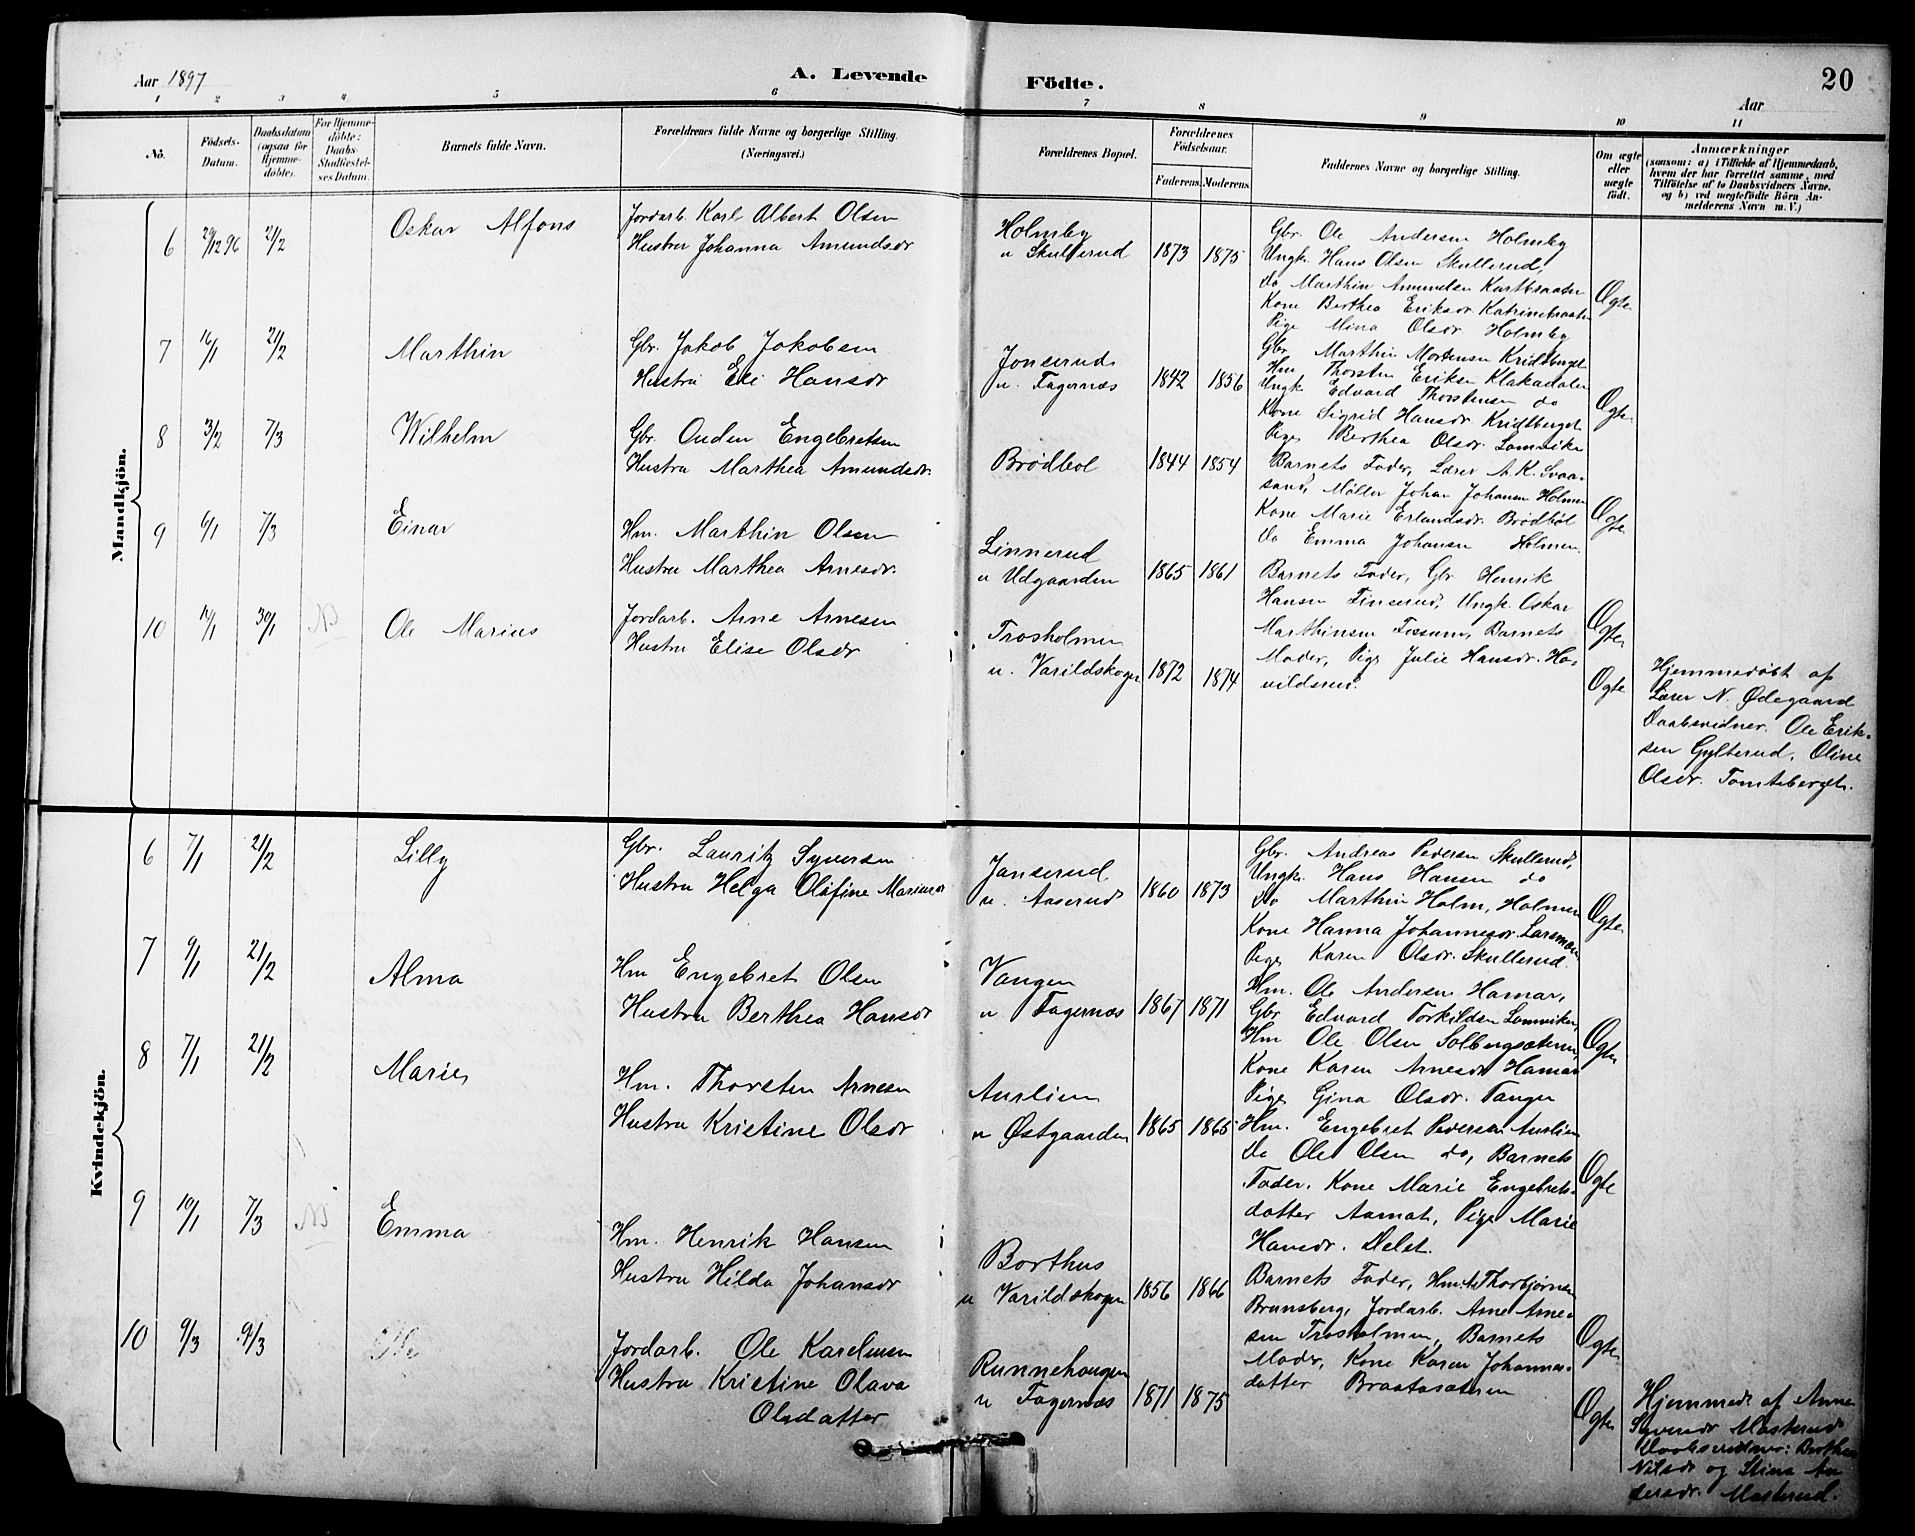 Aar 1897
A. Levende
Födte.
Aar
20
1 2 3 4 5 6 7 8 9 10 11
No.
Födsels-
Datum.
Daabsdatum
(ogsaa for
Hjemme-
døbte).
For Hjemme-
døbte:
Daabs-
Stadfæstel-
ses Datum.
Barnets fulde Navn.
Forældrenes fulde Navne og borgerlige Stilling.
(Næringsvei.)
Forældrenes Bopæl.
Forældrenes
Födselsaar.
Faderens. Moderens.
Faddernes Navne og borgerlige Stilling.
Om ægte
eller
uægte
født.
Anmærkninger
(saasom: a) i Tilfælde af Hjemmedaab,
hvem der har forrettet samme, med
Tilføielse af to Daabsvidners Navne,
og b) ved uægtefødte Börn An-
melderens Navn m. V.)
Mandkjön.
6 29/12 96 21/2 Oskar Alfons
Jordarb. Karl Albert Olsen
Hustru Johanna Amundsdr
Holmby
u Skullerud 1873 1875
Gbr. Ole Andersen Holmby
Ungk. Hans Olsen Skullerud,
do Marthin Amundsen
Kone Berthea Eriksdr. Katrinebraaten
Pige Mina Olsdr Holmby
Ægte
7 16/1 21/2 Marthin
Gbr. Jakob Jakobsen
Hustru Eli Hansdr
Jonserud
u. Fagernæs 1842 1856
Gbr. Marthin Mortensen Kridtberget
Hm Thorsten Eriksen Klakadalen
Ungk Edvard Thorstensen do
Kone Sigrid Hansdr. Kridtberget
Pige Berthea Olsdr. Lomviken
Ægte
8 3/2 7/3 Wilhelm
Gbr. Ouden Engebretsen
Hustru Marthea Amundsdr.
Brødbøl 1844 1854
Barnets Fader, Lærer A. K. Svaa-
sand, Møller Johan Johansen Holmen
Kone Marie Erlandsdr. Brödböl
do Emma Johansen Holmen
Ægte
9 6/1 7/3 Einar
Hm. Marthin Olsen
Hustru Marthea Arnesdr.
Linnerud
u Udgaarden 1865 1861
Barnets Fader, Gbr Henrik
Hansen Finserud, Ungk. Oskar
Marthinsen Fossum, Barnets
Moder, Pige Julie Hansdr. Ha-
vildsrud.
Ægte
10 30/1 Ole Marius
Jordarb. Arne Arnesen
Hustru Elise Olsdr
Trosholmen
u. Varildskogen 1872 1874
Ægte
Hjemmedøbt af
Lærer N. Ødegaard
Daabsvidner. Ole Erik-
sen Gylterud, Oline
Olsdr. Tomteberget.
Kvindekjön.
6 7/1 21/2 Lilly
Gbr. Lauritz Syversen
Hustru Helga Olefine
Janserud
u. Aaserud 1860 1873
Gbr. Andreas Pedersen Skullerud,
Ungk. Hans Hansen do
do Marthin Holm, Holmen
Kone Hanna Johannesdr. Larsmoen
Pige Karen Olsdr. Skullerud.
Ægte
7 9/1 21/2 Alma
Hm Engebret Olsen
Hustru Berthea Hansdr
Vangen
u Fagernæs 1867 1871
Hm. Ole Andersen Hamar,
Gbr Edvard Torkildsen Lomviken,
Hm Ole Olsen Solbergsæteren,
Kone Karen Arnesdr Hamar
Pige Gina Olsdr. Tangen
Ægte
8 7/1 21/2 Marie
Hm. Thorsten Arnesen
Hustru Kristine Olsdr
Aurlien
u Østgaarden 1865 1865
Hm. Engebret Pedersen Aurlien
do Ole Olsen do, Barnets
Fader. Kone Marie Engebrets-
datter Aamot, Pige Marie
Hansdr. Delet.
Ægte
9 10/1 7/3 Emma
Hm. Henrik Hansen
Hustru Hilda Johansdr
Borthus
u Varildskogen 1856 1866
Barnets Fader, Hm. A. Thorbjørnsen
Brunsberg, Jordarb. Arne Arne-
sen Trosholmen, Barnets
Moder, Kone Karen Johannes-
datter Braatasæteren
Ægte
10 9/3 9/3
Jordarb. Ole Karelinsen
Hustru Kristine Olava
Olsdatter
Runnehaugen
u Fagernæs 1871 1875
Ægte
Hjemmed. af Anne
Syversdr Masterud
Daabsvidner: Berthea
Nilsdr og Stina An
dersdr. Masterud.